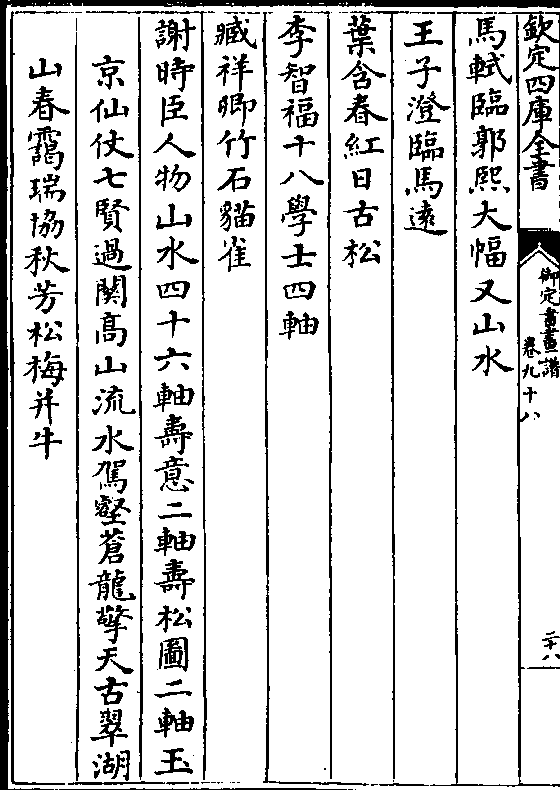 欽定四庫全書
御定書畫譜
卷九十八
二十八
馬軾臨郭熙大幅又山水
王子澄臨馬遠
葉含春紅日古松
李智福十八學士四軸
臧祥卿竹石貓雀
謝時臣人物山水四十六軸壽意二軸壽松圖二軸玉
京仙仗七賢過關高山流水駕壑蒼龍擎天古翠湖
山春靄瑞協秋芳松梅并牛